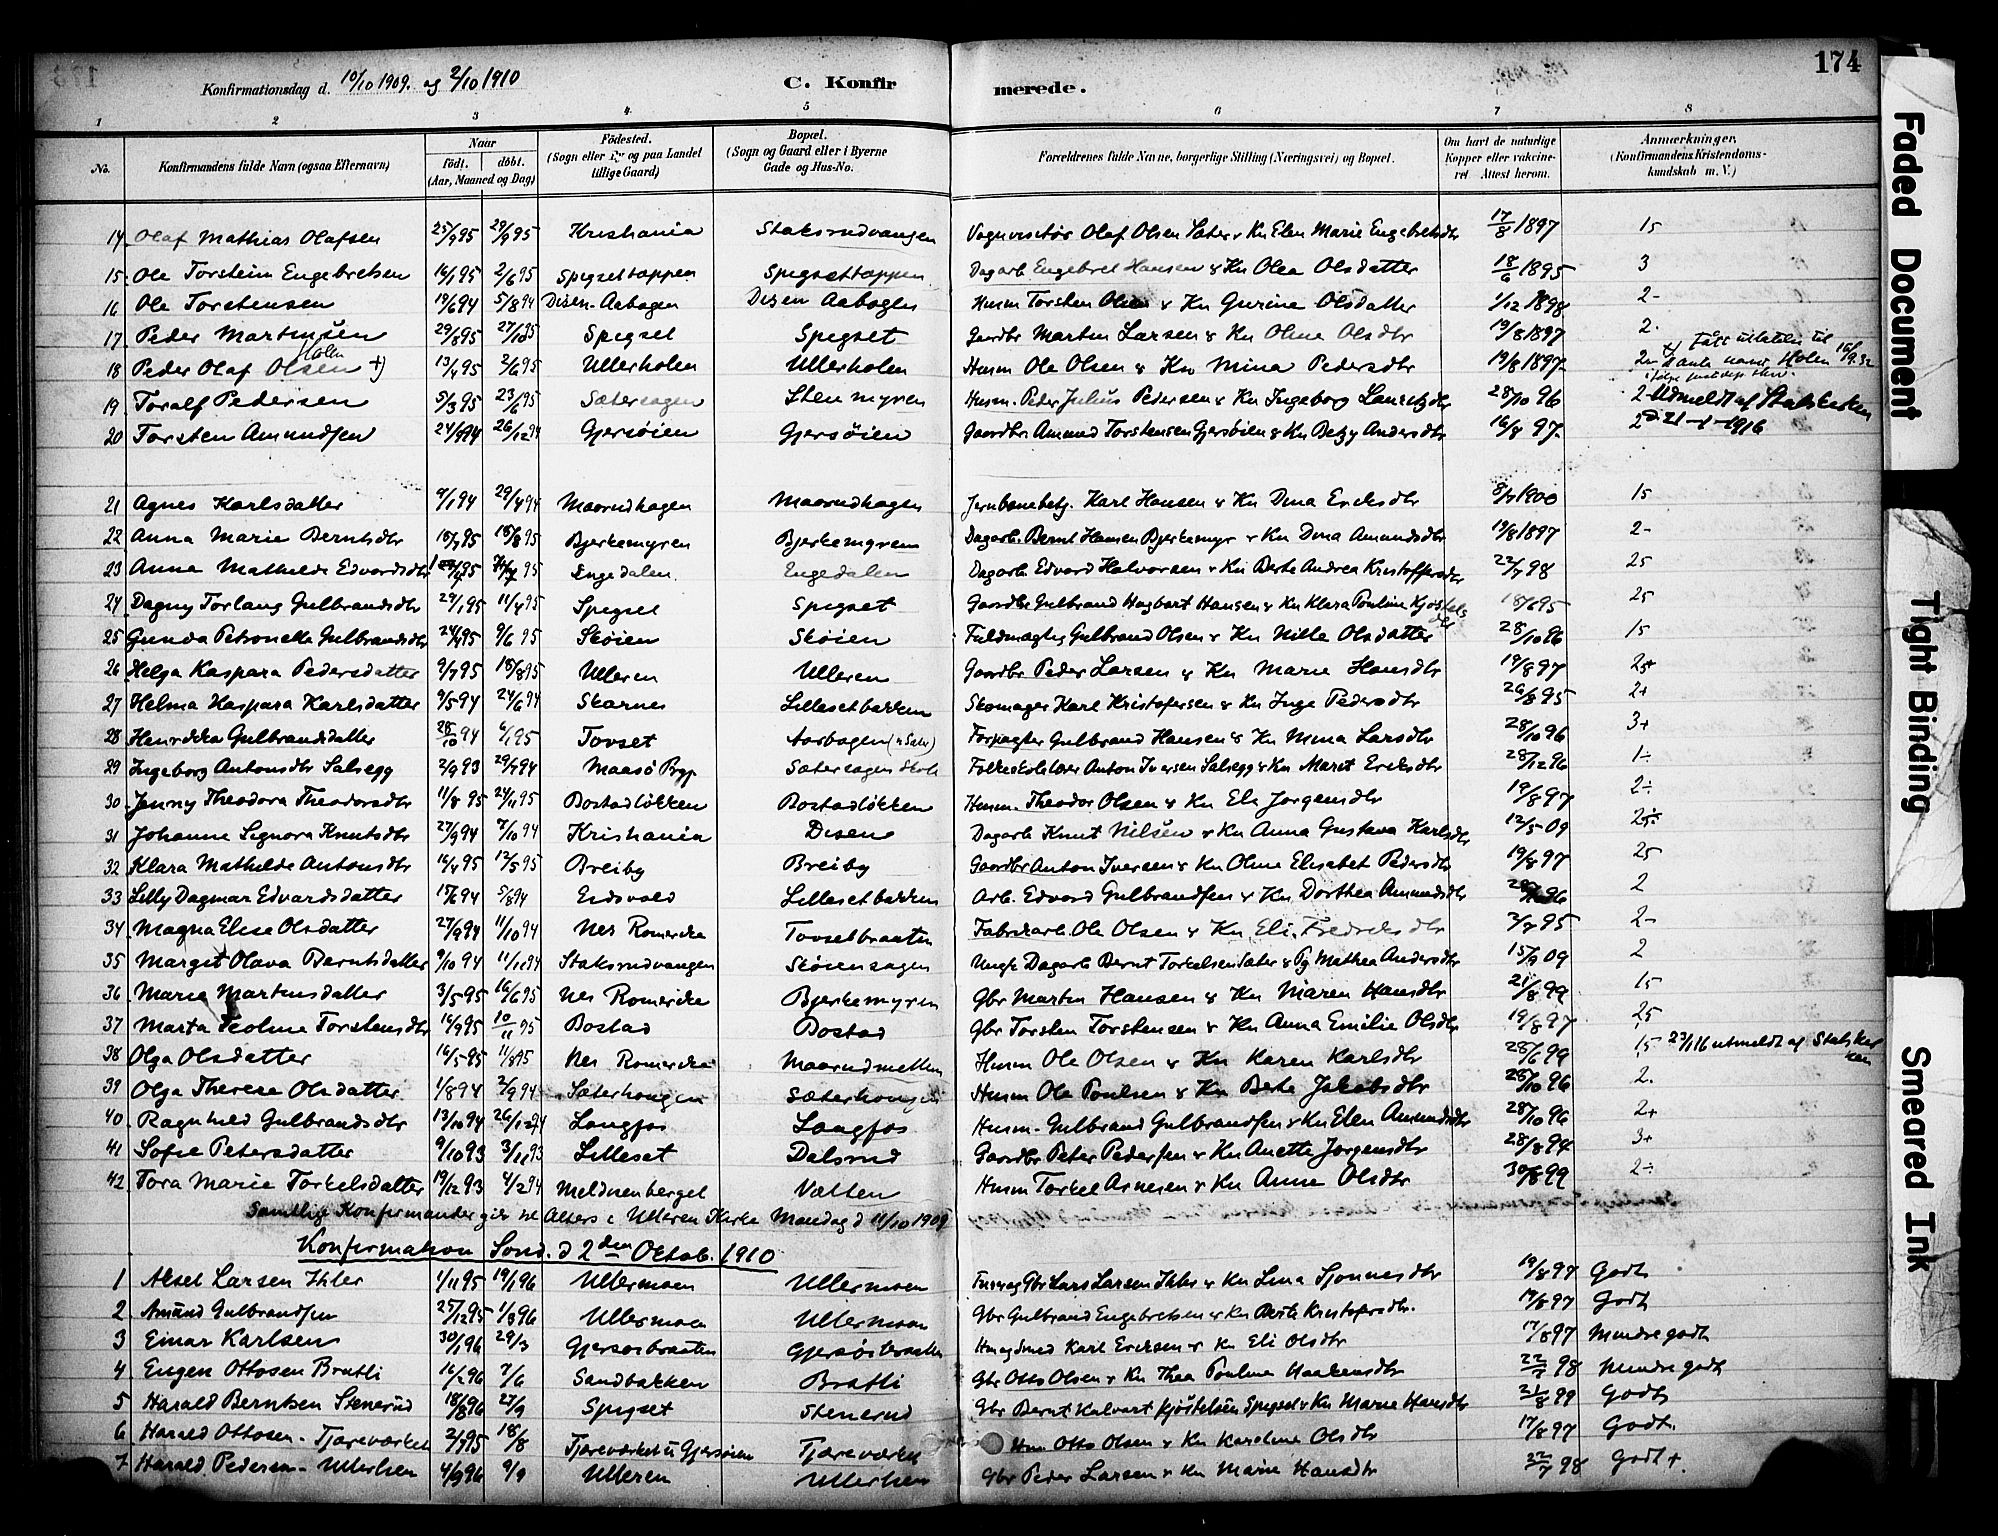 174
Konfirmationsdag d. 10/10 1909. og 2/10 1910 C. Konfirmerede.
1 2 3 4 5 6 7 8
No. Konfirmandens fulde Navn (ogsaa Efternavn) Naar født. døbt. (Aar, Maaned og Dag) Fødested. (Sogn eller By og paa Landet tillige Gaard) Bopæl. (Sogn og Gaard eller i Byerne Gade og Hus-No. Forældrenes fulde Navne, borgerlige Stilling (Næringsvei) og Bopæl. Om havt de naturlige Kopper eller vakcineret Attest herom. Anmærkninger. (Konfirmandens Kristendomskundskab m. V.)
14 Olaf Mathias Olafsen 25/9 95 29/9 95 Kristiania Staksrudvangen Vognvisitør Olaf Olsen Sæter & Kn Elen Marie Engebretsdtr 17/8 1897 15
15 Ole Torstein Engebretsen 16/1 95 2/6 95 Spigsettoppen Spigsettoppen Dagarb Engebret Hansen & Kn Olea Olsdatter 18/6 1895 3
16 Ole Torstensen 19/6 94 5/8 94 Disen-Aabogen Disen Aabogen Husm Torsten Olsen & Kn Gurine Olsdatter 1/12 1898 2-
17 Peder Martinsen 29/8 95 27/10 95 Spigset Spigset Gaardbr Martin Larsen & Kn Oline Olsdtr 19/8 1897 2.
18 Peder Olaf Olsen Holen +) 13/4 95 2/6 95 Ullerholen Ullerholen Husm Ole Olsen & Kn Mina Pedersdtr 19/8 1897 2- +) Fått tillatelse til å anta navn Holen
19 Toralf Pedersen 5/3 95 23/6 95 Sætersagen Stenmyren Husm. Peder Julius Pedersen & Kn Ingeborg Lauritzdtr 28/10 96 2- Udmeldt af Statskirken
20 Torsten Amundsen 24/9 94 26/12 94 Gjersøien Gjersøien Gaardbr. Amund Torstensen Gjersøien & Kn Betzy Andersdtr 16/8 97. 2 d 21-1-1916
21 Agnes Karlsdatter 9/1 94 29/4 94 Maarudhagen Maarudhagen Jernbanebetj. Karl Hansen & Kn Dina Eriksdtr 8/7 1900 15
22 Anna Marie Berntsdtr 15/7 95 18/8 95 Bjerkemyren Bjerkemyren Dagarb. Bernt Hansen Bjerkemyr & Kn Dina Amundsdtr 19/8 1897 2-
23 Anna Mathilde Edvardsdtr 95 95 Engedalen Engedalen Dagarb Edvard Halvorsen & Kn Berte Andrea Kristoffersdtr 22/7 98 25
24 Dagny Torlaug Gulbrandsdtr 29/1 95 11/4 95 Spigset Spigset Gaardbr Gulbrand Hagbart Hansen & Kn Klara Pauline Kjøstelsdtr 18/6 95 25
25 Gunda Petronella Gulbrandsdtr 24/4 95 9/6 95 Skøien Skøien Fuldmægtig Gulbrand Olsen & Kn Nille Olsdatter 28/10 96 15
26 Helga Kaspara Pedersdatter 9/7 95 18/8 95 Ulleren Ulleren Gaardbr Peder Larsen & Kn Marie Hansdtr 19/8 97 25+
27 Helma Kaspara Karlsdatter 9/5 94 24/6 94 Skarnes Lillesetbakken Skomager Karl Kristofersen & Kn Inge Pedersdtr 26/8 95 2+
28 Henrikka Gulbrandsdatter 28/10 94 6/1 95 Tovset Aarbogen (Sæter) Forpagter Gulbrand Hansen & Kn Mina Larsdtr 28/10 96 3+
29 Ingeborg Antonsdtr Salsegg 2/9 93 29/4 94 Maasø Bygd Sætersagen Skole Folkeskolelærer Anton Iversen Salsegg & Kn Marit Eriksdtr 28/12 96 1÷
30 Jenny Theodora Theodorsdtr 11/8 95 24/11 95 Bostadløkken Bostadløkken Husm. Theodor Olsen & Kn Eli Jørgensdtr 19/8 97 2÷
31 Johanne Signora Knutsdtr 27/9 94 7/10 94 Kristiania Disen Dagarb Knut Nilsen & Kn Anna Gustava Karlsdtr 12/5 09 25÷
32 Klara Mathilde Antonsdtr 16/4 95 12/5 95 Breiby Breiby Gaardbr Anton Iversen & Kn Oline Elisabet Pedersdtr 19/8 97 25
33 Lilly Dagmar Edvardsdatter 15/6 94 5/8 94 Eidsvold Lillesetbakken Arb. Edvard Gulbrandsen & Kn Dorthea Amundsdtr 28/10 96 2
34 Magna Elise Olsdatter 27/9 94 11/10 94 Nes Romerike Tovsetbraaten Fabrikarb. Ole Olsen & Kn Eli Fredriksdtr 3/7 95 2-
35 Margit Olava Berntsdatter 9/10 94 11/11 94 Staksrudvangen Skøiensagen Ungk Dagarb Bernt Torkelsen Sæter & Pg Mathea Andersdtr 15/9 09 2
36 Marie Martinsdatter 3/5 95 16/6 95 Nes Romerike Bjerkemyren Gbr Martin Hansen & Kn Maren Hansdtr 21/8 99 15
37 Marta Teoline Torstensdtr 14/9 95 10/11 95 Bostad Bostad Gbr Torsten Torstensen & Kn Anna Emilie Olsdtr 19/8 97 25
38 Olga Olsdatter 16/5 95 11/8 95 Nes Romerike Maarudmellen Husm Ole Olsen & Kn Karen Karlsdtr 28/6 99 15 23/1 16 utmeldt af Statskirken
39 Olga Therese Olsdatter 1/8 94 2/9 94 Sæterhaugen Sæterhaugen Husm Ole Paulsen & Kn Berte Jakobsdtr 28/10 96 2.
40 Ragnhild Gulbrandsdtr 13/10 94 26/12 94 Langfos Langfos Husm. Gulbrand Gulbrandsen & Kn Elen Amundsdtr 28/10 96 2+
41 Sofie Petersdatter 9/10 93 3/12 93 Lilleset Dalsrud Gaardbr Peter Pedersen & Kn Anette Jørgensdtr 28/8 94 3+
42 Tora Marie Torkelsdatter 19/12 93 4/2 94 Meldnenberget Vatten Husm Torkel Arnesen & Kn Anne Olsdtr 30/8 99 2÷
Samtlige Konfirmander gik til Alters i Ulleren Kirke Mandag d 11/10 1909
Konfirmation Sønd. d 2den Oktob. 1910
1 Aksel Larsen Ihler 1/11 95 19/1 96 Ullermoen Ullermoen Gbr Lars Larsen Ihler & Kn Lina Simonesdtr 19/8 97 Godt
2 Amund Gulbrandsen 25/12 95 1/3 96 Ullermoen Ullermoen Gbr Gulbrand Engebretsen & Kn Berte Kristofersdtr. 19/8 97 Godt
3 Einar Karlsen 30/1 96 29/3 Gjersøibraaten Gjersøibraaten Karl Eriksen & Kn Eli Olsdtr 17/8 97 Mindre godt
4 Eugen Ottosen Bratli 16/2 96 7/6 Sandbakken Bratli Gbr Otto Olsen & Kn Thea Pauline Haakensdtr 22/7 98 Mindre godt
5 Harald Berntsen Stenerud 18/8 96 27/9 Spigset Stenerud Gbr Bernt Halvart Kjøstelsen Spigset & Kn Marie Hansdtr 21/8 99 Godt
6 Harald Ottosen - Tjæreværket 2/7 95 18/8 Tjæreværket u Gjersøien Tjæreværket Husm Otto Olsen & Kn Karoline Olsdtr 17/8 97 Godt.
7 Harald Pedersen - Ullerhen 4/8 96 9/9 Ulleren Ullerhen Gbr Peder Larsen & Kn Marie Hansdtr 22/7 98 Godt +.
Faded Document
Tight Binding
Smeared Ink